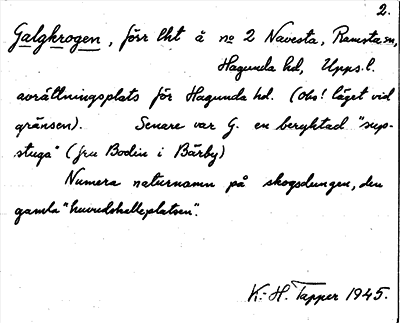 2.
Galgkrogen, förr lht å no 2 Navesta, Ramsta sn,
Hagunda hd, Upps. l.
avrättningsplats för Hagunda hd. (obs! läget vid
gränsen). Senare var G. en beryktad "sup-
stuga" (fru Bodin i Bärby)
Numera naturnamn på skogsdungen, den
gamla "huvudskalleplatsen".
K.-H. Tapper 1945.